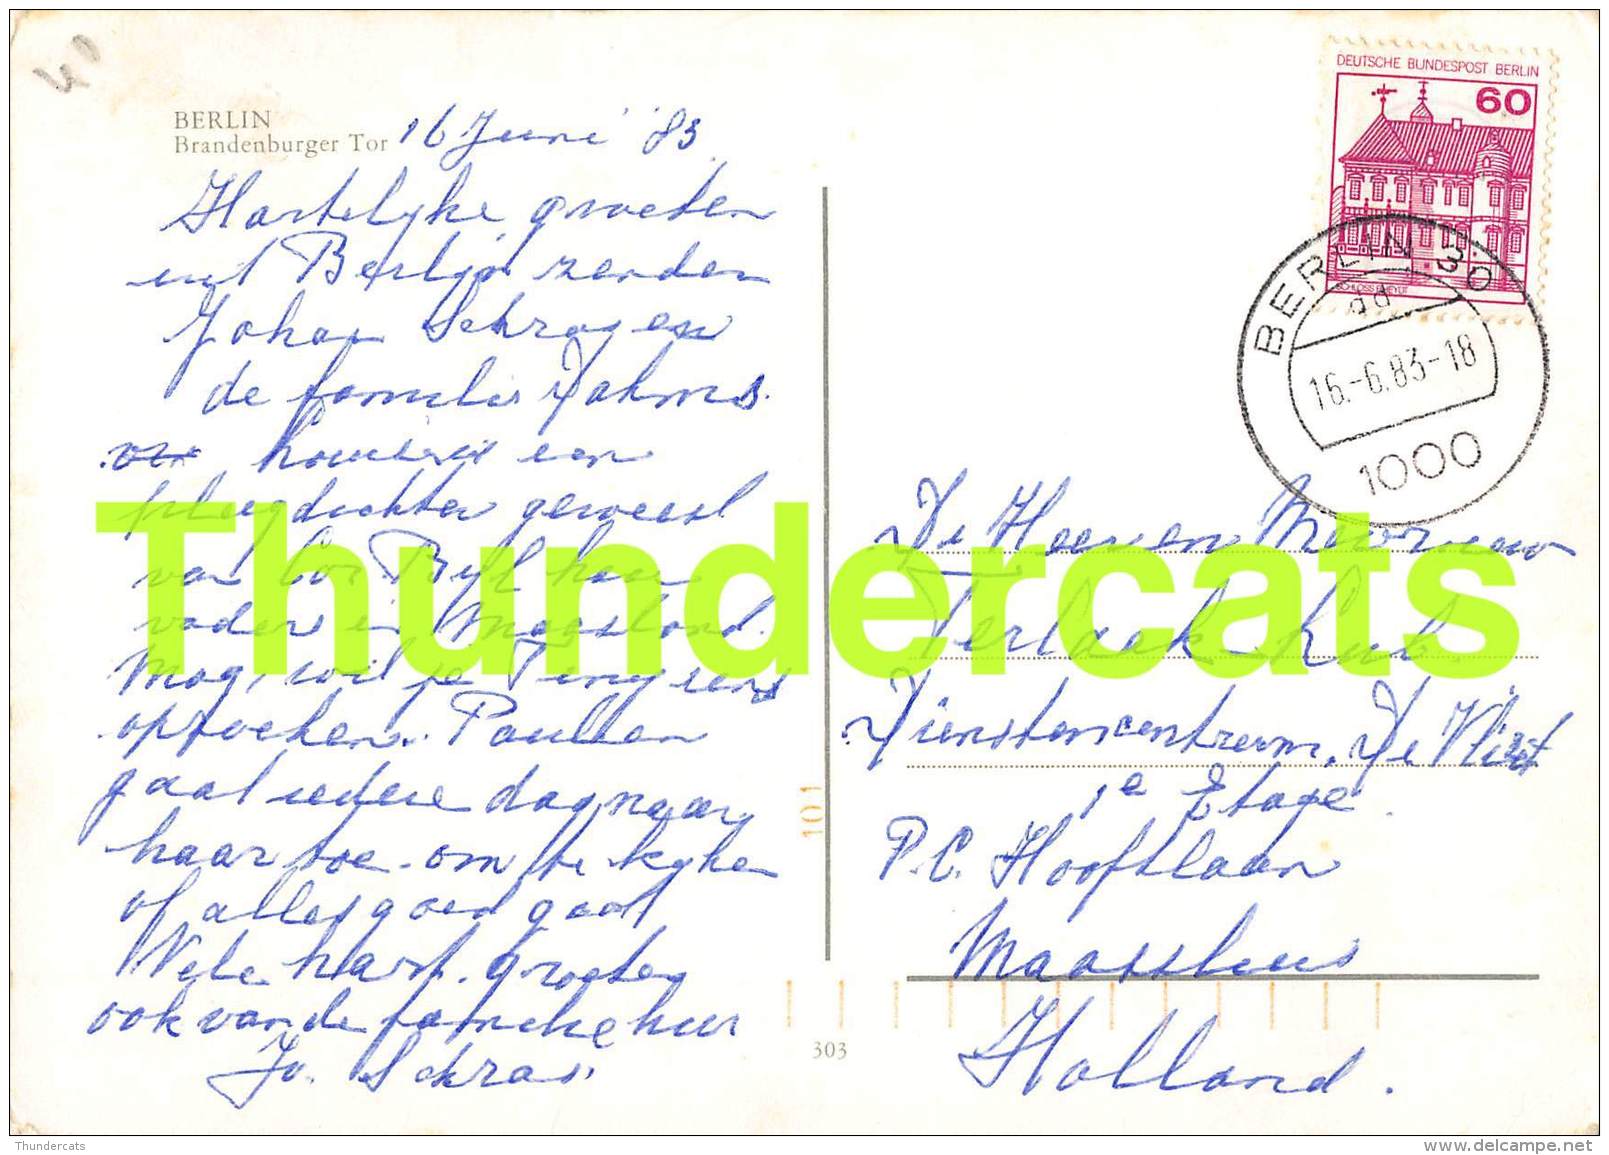 40
BERLIN
Brandenburger Tor 16 Juni '83
Hartelyke groeten
uit Berlijn zenden
Johan Schragen
de familie Dahms.
een
pleegdochter geweest
van Cor Byl haar
vader in Maasland.
Mag, wil je
opzoeken. Paulien
gaat iedere dag naar
haar toe om te kyken
of alles goed gaat
Vele hart. groeten
ook van de familie hier
Jo. Schrag.
DEUTSCHE BUNDESPOST BERLIN
60
SCHLOSS RHEYDT
BERLIN 30
ad
16.-6.83-18
1000
De Heer en Mevrouw
Terlaak-Lub
Dienstencentrum, De Vliet
1e Etage
P.C. Hooftlaan
Maassluis
Holland.
101
303
Thundercats
Thundercats
www.delcampe.net